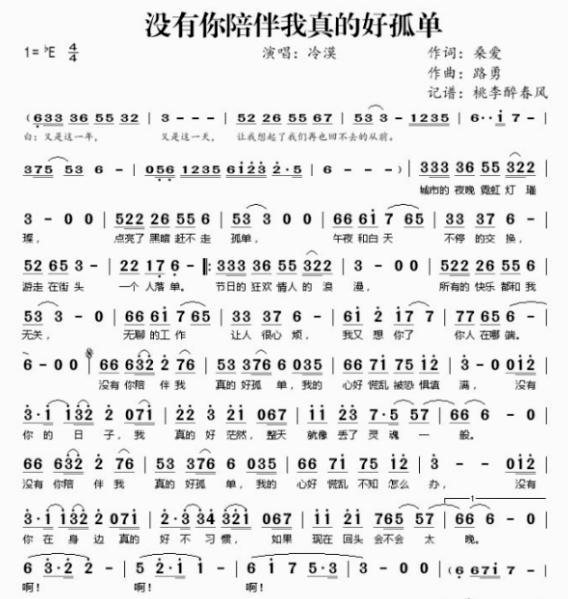 没有你陪伴我真的好孤单
1= ♭E 4/4 演唱：冷漠 作词：桑爱
作曲：路勇
记谱：桃李醉春风
(633 36 55 32 | 3 - - - | 52 26 55 67 | 53 3 - 1235 | 6·· i 7 - |
白：又是这一年， 又是这一天， 让我想起了我们再也回不去的从前。
375 53 6 - | 056 1235 6i23 2·5 | 6 - - - ) | 333 36 55 322 |
城市的 夜晚 霓虹 灯 璀
3 - 0 0 | 522 26 55 6 | 53 3 0 0 | 66 6i 7 65 | 33 36 53 32 |
璨， 点亮了 黑暗 赶不 走 孤单， 午夜 和白 天 不停 的交 换，
52 65 3 - | 22 17 6 - |: 333 36 55 322 | 3 - 0 0 | 522 26 55 6 |
游走 在街 头 一个 人落 单。 节日的 狂欢 情人 的 浪 漫， 所有的 快乐 都和 我
53 3 0 - | 66 6i 7 65 | 33 36 53 32 | 6i 2 i7 7 | 77 65 6 - |
无关， 无聊 的工 作 让人 很心 烦， 我又 想 你了 你人 在哪 端。
6 - 0 0 | 66 632 2 76 | 53 376 6 035 | 66 7i 75 i2 | 3 - 0 0i2 |
没有 你陪 伴 我 真的 好孤 单，我的 心好 慌乱 被恐 惧填 满， 没有
3·i i32 2 07i | 22 3 2i 067 | ii 23 7·5 57 | 66 6 - 0 |
你 的 日 子，我 真的 好 茫然，整天 就像 丢了 灵 魂 一 般。
66 632 2 76 | 53 376 6 035 | 66 7i 75 i2 | 3 - - 0i2 |
没有 你陪 伴 我 真的 好孤 单，我的 心好 慌乱 不知 怎么 办， 没有
3·i i32 2 07i | 2·3 34 32i 067 | i2 2i 765 57 | 1 66 6 - 0 |
你 在 身 边 真的 好 不 习 惯， 如果 现在 回头 会不会 太 晚。
6 3·2 2 - | 5 2·i i - | 6 i 7 5·3 | 3 - - - | (6 67i 7 - |
啊！ 啊！ 啊！